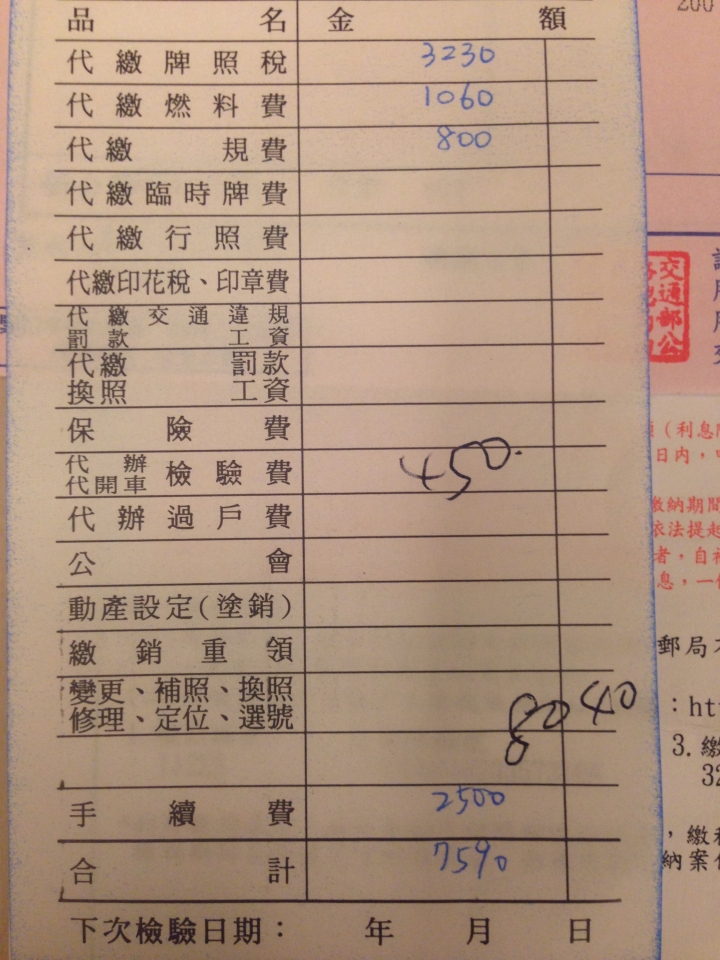 200
品名 金額
代繳牌照稅 3230
代繳燃料費 1060
代繳規費 800
代繳臨時牌費
代繳行照費
代繳印花稅、印章費
代繳交通違規
罰款工資
代繳罰款
換照工資
保險費
代辦
代開車 檢驗費 450
代辦過戶費
公會
動產設定(塗銷)
繳銷重領
變更、補照、換照
修理、定位、選號
8040
手續費 2500
合計 7590
下次檢驗日期： 年 月 日
交通部公
(利息
日內，
繳納期間
依法提起
者，自
息，一
郵局
：htt
3. 繳
32
，繳
納案